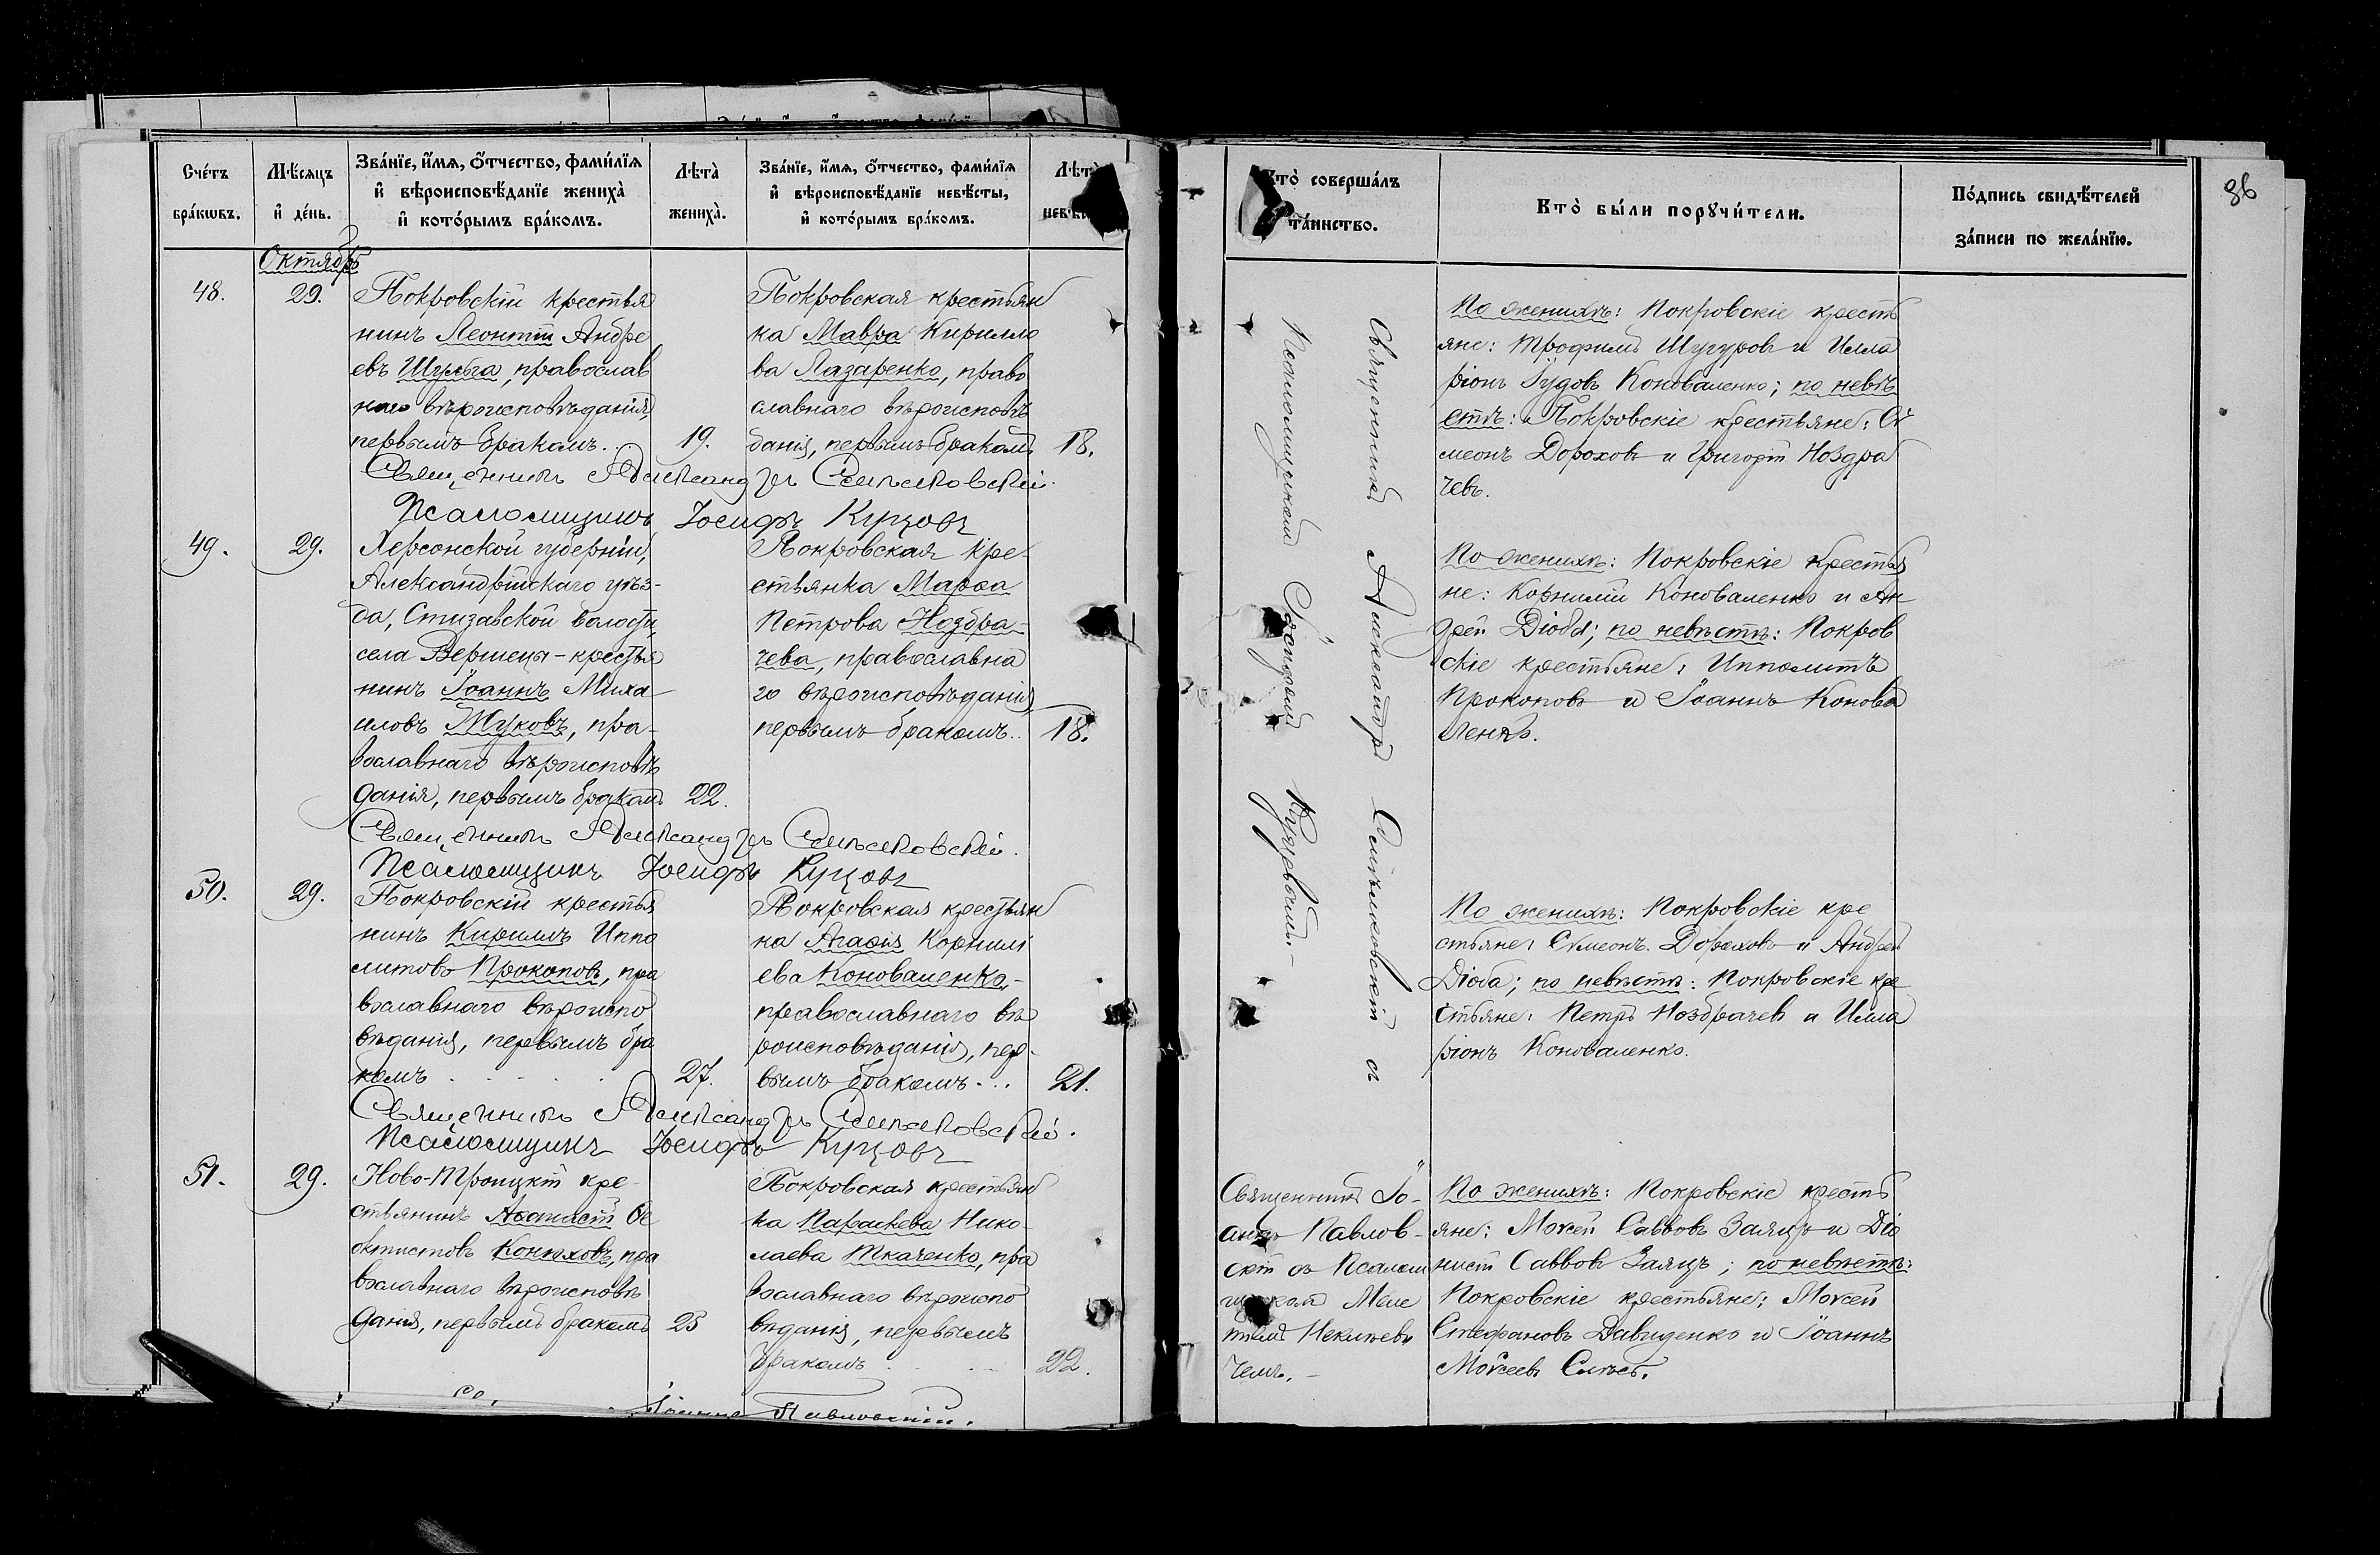 Сче́тъ бра́кѡвъ.
Мѣ́сяцъ и҆ де́нь.
Зва́нїе, и҆́мѧ, ѻ҆́тчество, фами́лїѧ
и҆ вѣроисповѣ́данїе жениха̀
и҆ кото́рымъ бра́комъ.
Лѣта̀ жениха̀.
Зва́нїе, и҆́мѧ, ѻ҆́тчество, фами́лїѧ
и҆ вѣроисповѣ́данїе невѣ́сты,
и҆ кото́рымъ бра́комъ.
Октябрь
48.
29.
Покровскій крестья
нинъ Леонтій Андре
евъ Шульга, православ
наго вѣроисповѣданія,
первымъ бракомъ.
19.
Покровская крестьян
ка Мавра Кирилло
ва Лазаренко, право
славнаго вѣроисповѣ
данія, первымъ бракомъ
18.
Священникъ Александръ Сѣмековскій.
Псаломщикъ Іосифъ Купцовъ
49.
29.
Херсонской губерніи,
Александрійскаго уѣз-
да, волости,
села Вершецы - крестья
нинъ Іоаннъ Миха
иловъ Жуковъ, пра-
вославнаго вѣроисповѣ
данія, первымъ бракомъ
22.
Покровская кре-
стьянка Марѳа
Петрова Ноздра-
чева, православна
го вѣроисповѣданія,
первымъ бракомъ..
18.
Священникъ Александръ Сѣмековскій.
Псаломщикъ Іосифъ Купцовъ
50.
29.
Покровскій крестья
нинъ Кириллъ Иппо
литовъ Прокоповъ, пра
вославнаго вѣроиспо
вѣданія, первымъ бра
комъ . . . . .
27.
Покровская крестьян
ка Агаѳія Корнилі
ева Коноваленко -
православнаго вѣ
роисповѣданія, пер-
вымъ бракомъ...
21.
Священникъ Александръ Сѣмековскій.
Псаломщикъ Іосифъ Купцовъ
51.
29.
Ново-Троицкій кре-
стьянинъ Аѳанасій Ѳе
октистовъ Конюховъ, пра
вославнаго вѣроисповѣ
данія, первымъ бракомъ
25
Покровская крестьян
ка Параскева Нико-
лаева Ткаченко, пра
вославнаго вѣроиспо
вѣданія, первымъ
бракомъ
22.
Іоаннъ Павловскій.
Кто̀ соверша́лъ
та́инство.
Кто̀ бы́ли порꙋчи́тели.
По́дпись свидѣ́телей
за́писи по жела́нїю.
36
Священникъ Александръ Сѣмековскій съ
Псаломщикомъ Іосифомъ Купцовымъ. -
По женихѣ: Покровскіе кресть
яне: Трофимъ Шугуровъ и Илла
ріонъ Іудовъ Коноваленко; по невѣ
стѣ: Покровскіе крестьяне: Си
меонъ Дороховъ и Григорій Ноздра
чевъ.
По женихѣ: Покровскіе крестья
не: Корнилій Коноваленко и Ан
дрей Діоба; по невѣстѣ: Покров
скіе крестьяне: Ипполитъ
Прокоповъ и Іоаннъ Конова
ленко.
По женихѣ: Покровскіе кре
стьяне: Симеонъ Дороховъ и Андрей
Діоба; по невѣстѣ: Покровскіе кре
стьяне: Петръ Ноздрачевъ и Илла
ріонъ Коноваленко.
Священникъ Іо-
аннъ Павлов-
скій съ Псалом
щикомъ
чемъ. -
По женихѣ: Покровскіе кресть
яне: Моѵсей Саввовъ Заяцъ и Діо
нисій Саввовъ Заяцъ; по невѣстѣ:
Покровскіе крестьяне: Моѵсей
Стефановъ Давиденко и Іоаннъ
Моѵсеевъ